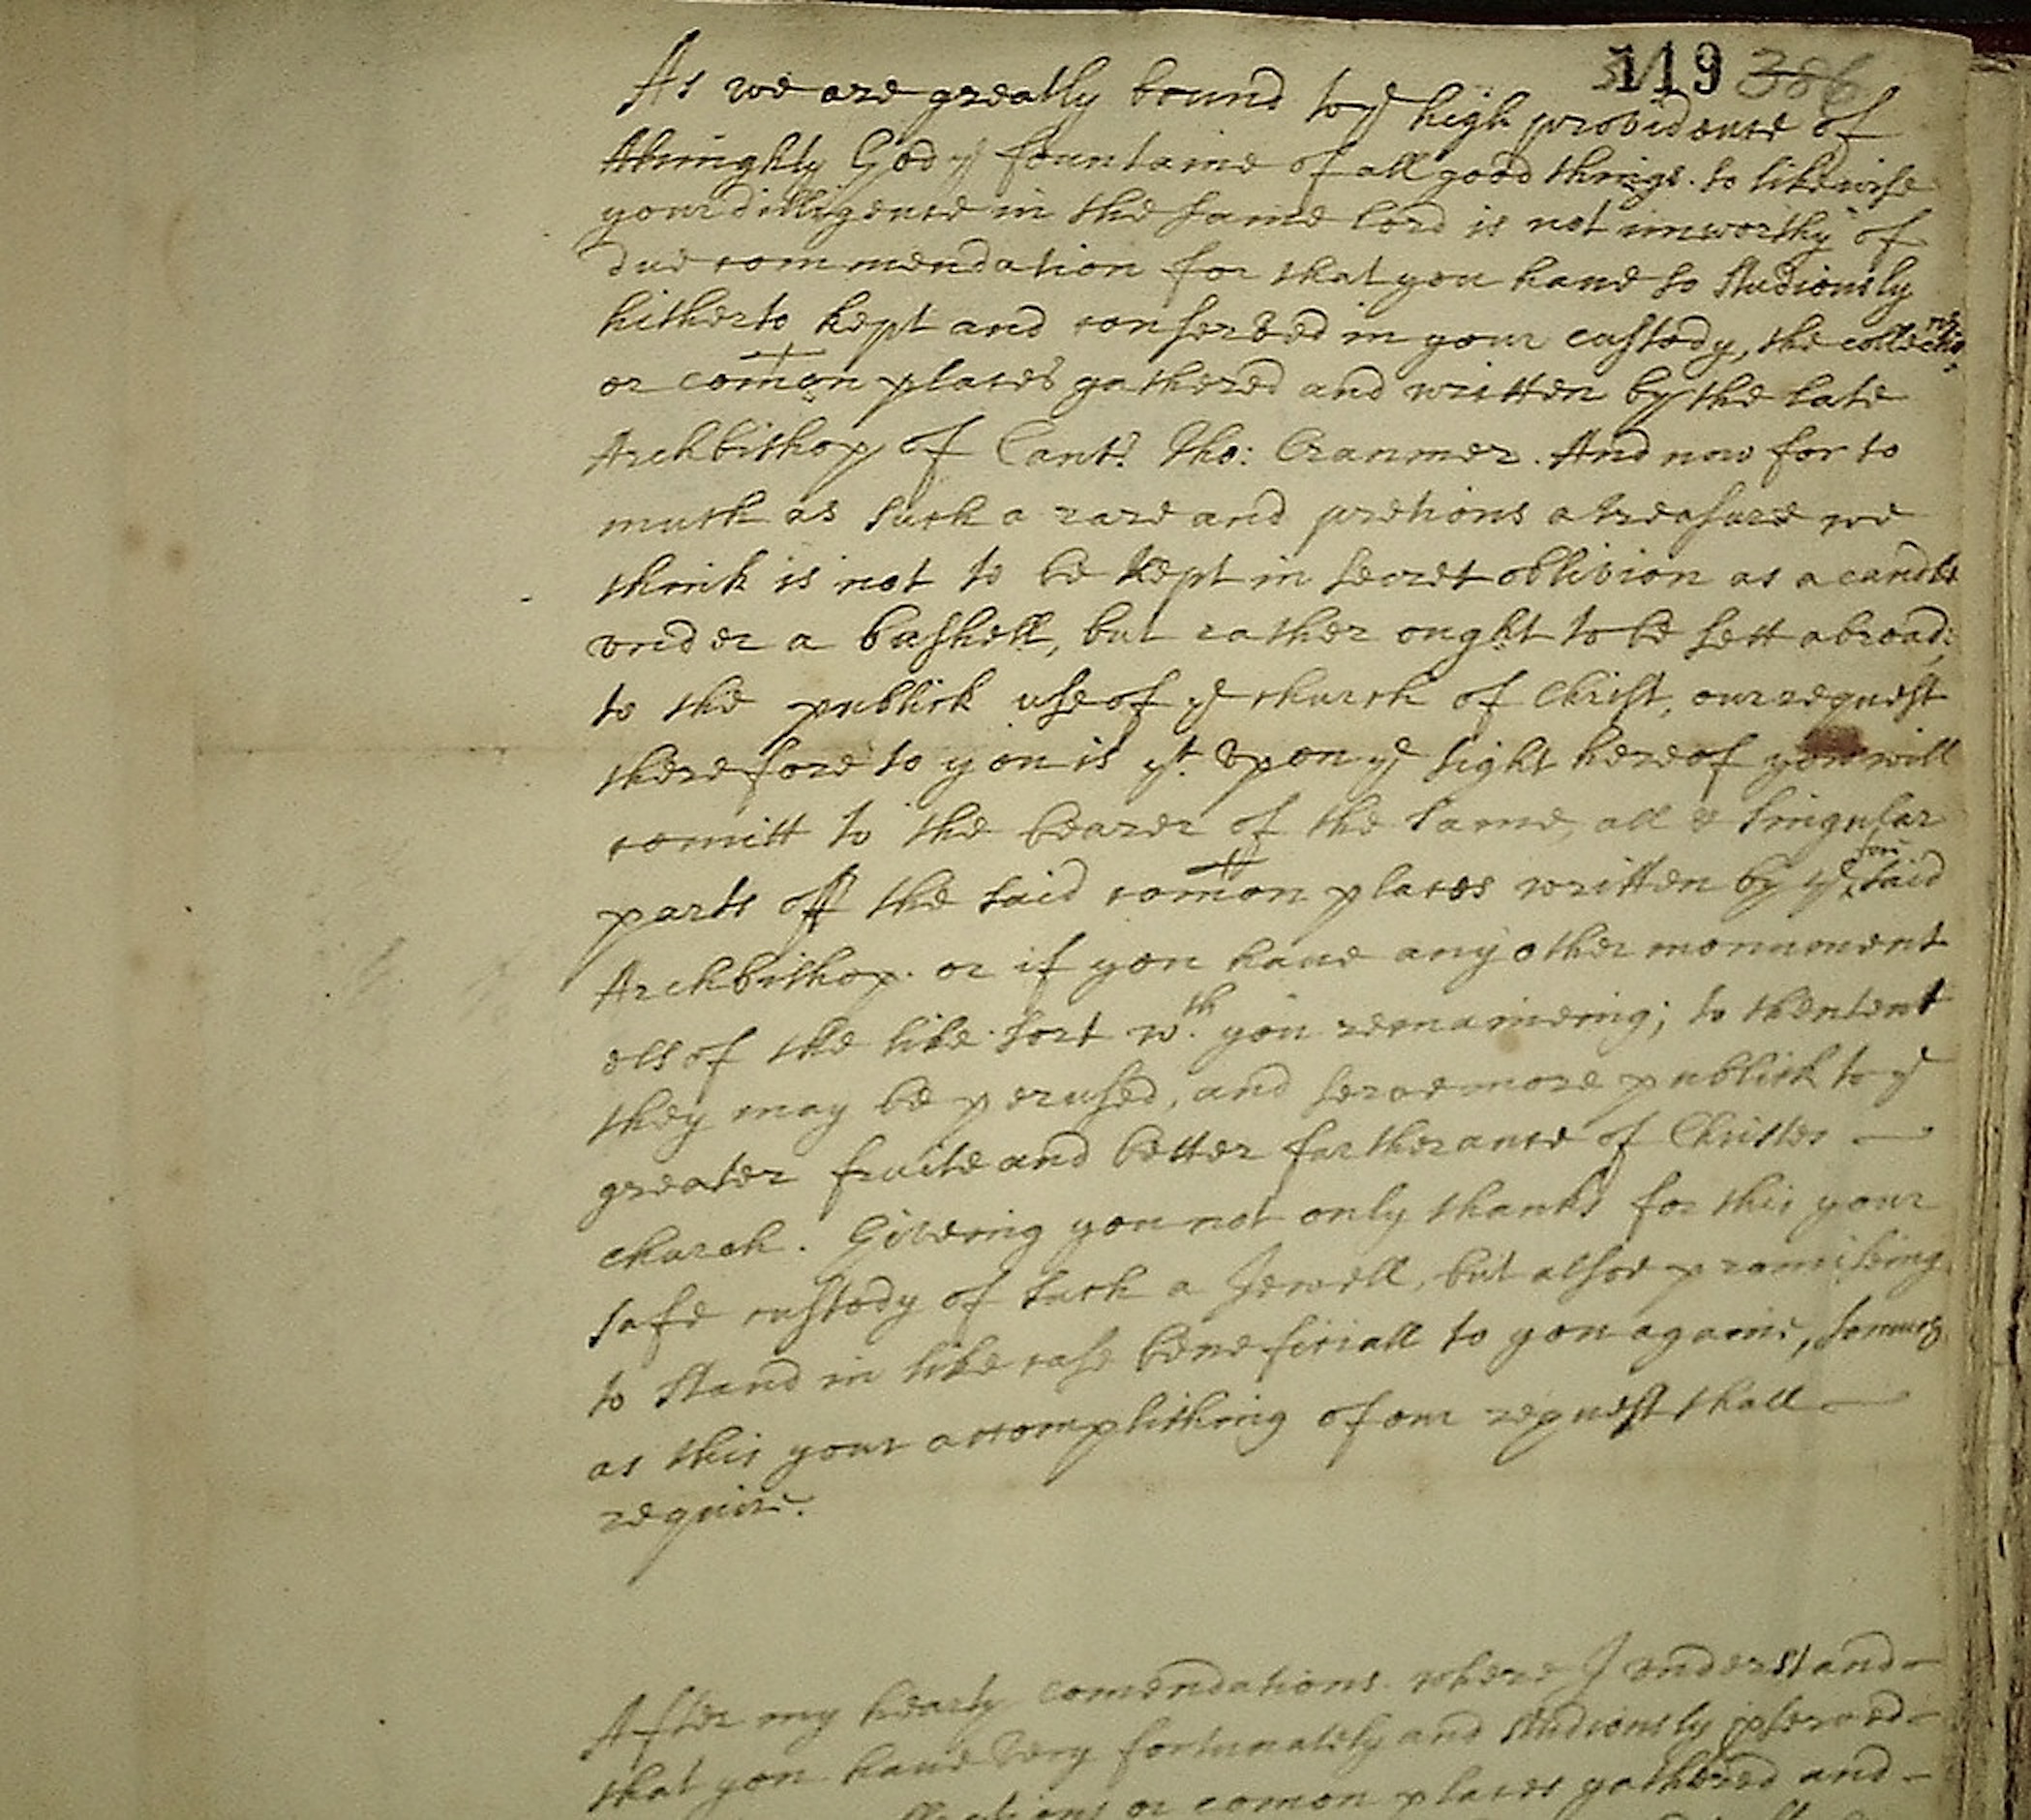 119 386
As we are greatly bound to ye high providence of
Almighty God ye fountaine of all good things. so likewise
your dilligence in the same lord is not unworthy of
due commendation for that you haue so studiously
hitherto kept and conserved in your custody, the collections
or com̄on places gathered and written by the late
Archbishop of Cant: Tho: Cranmer. And now for so
much as such a rare and pretious a treasure we
think is not to be kept in secret oblivion as a candle
vnder a bushell, but rather ought to be sett abroad:
to the publick use of ye church of Christ, our request
therefore to you is yt. vpon ye sight hereof you will
comitt to the bearer of the same, all & singular
parts off the said com̄on places written by ye fore said
Archbishop. or if you haue any other monument
els of the like sort wth. you remaineing; to thentent
they may be perused, and serve more publick to ye
greater fruite and better furtherance of Christes
church. Giveing you not only thanks for this your
safe custody of such a Jewell, but alsoe promiseing
to stand in like case beneficiall to you againe, so
as this your accomplishing of our request shall
require.
After my hearty comendations. where J vnderstand
that you haue very fortunately and studiously pserved
or comon places gathered and